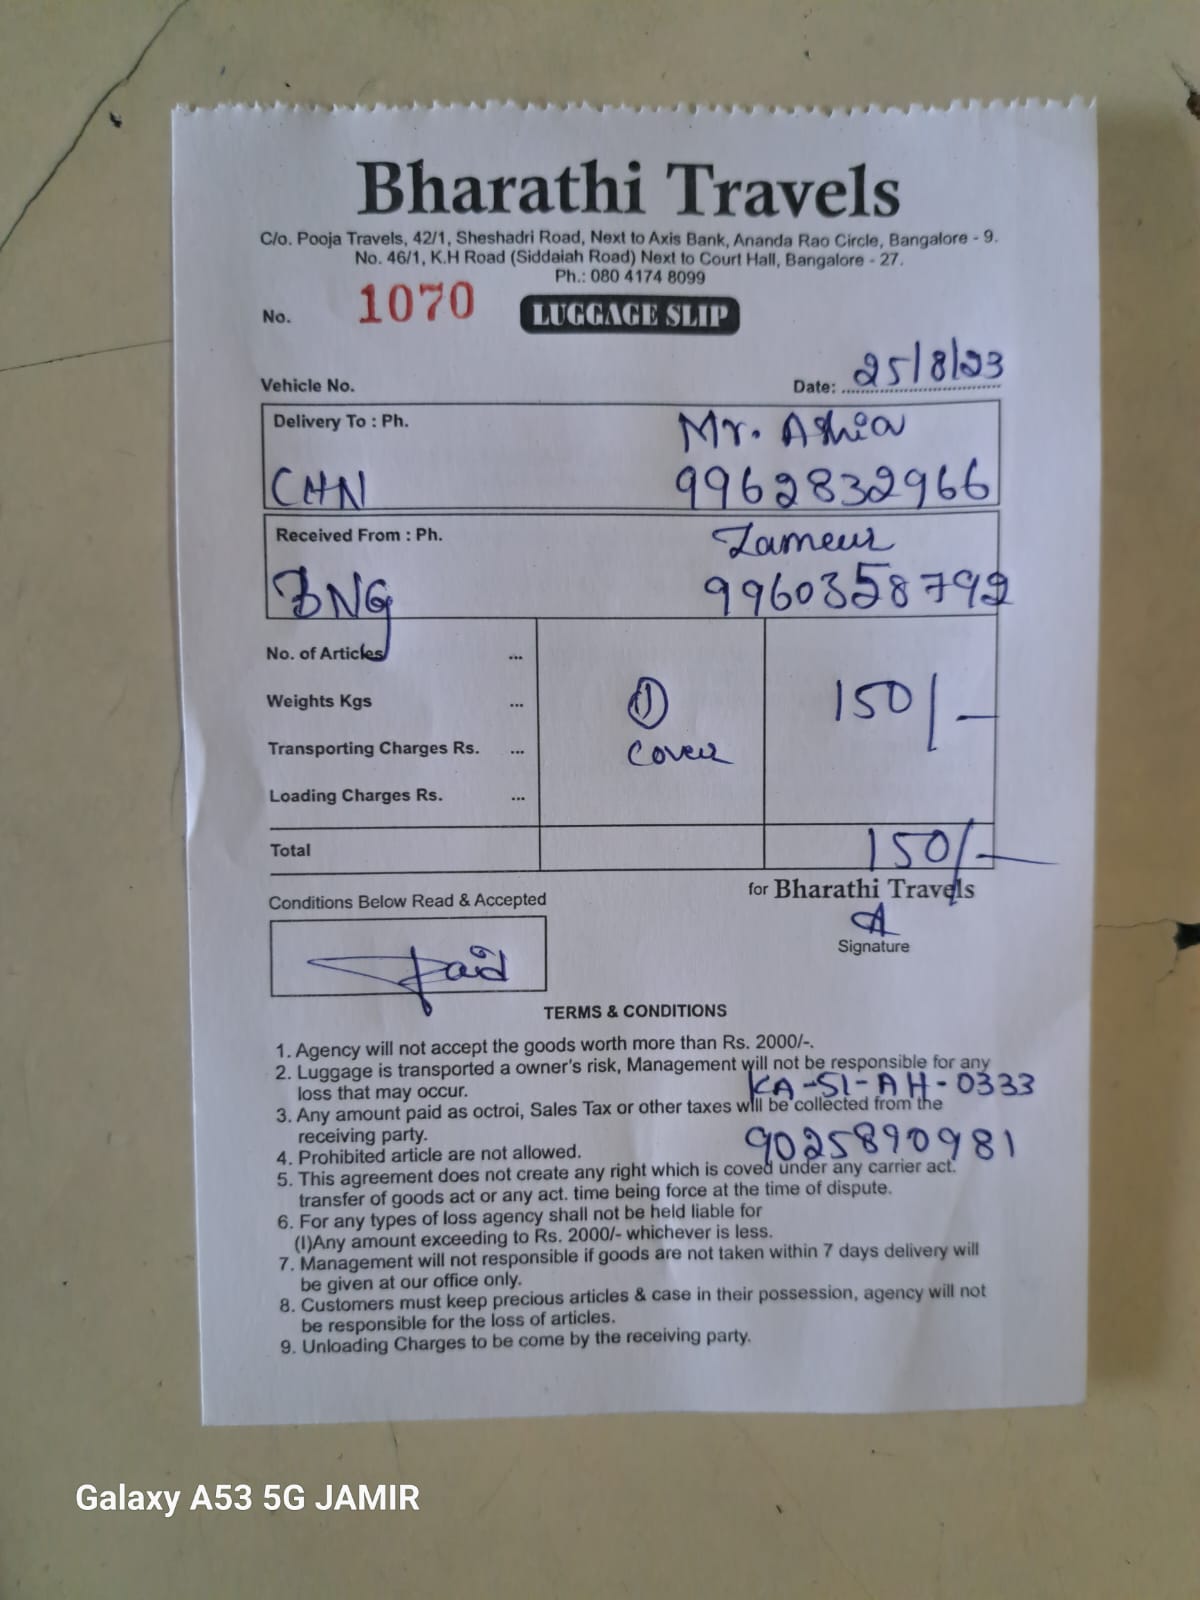 Bharathi Travels
C/o. Pooja Travels, 42/1, Sheshadri Road, Next to Axis Bank, Ananda Rao Circle, Bangalore - 9.
No. 46/1, K.H Road (Siddaiah Road) Next to Court Hall, Bangalore - 27.
Ph.: 080 4174 8099
No. 1070 LUGGAGE SLIP
Vehicle No. Date: 25/8/23
Delivery To : Ph. Mr.
CHN 9962832966
Received From : Ph. Zameer
BNG 9960358792
No. of Articles ...
Weights Kgs ... 1 150/-
Transporting Charges Rs. ... cover
Loading Charges Rs. ...
Total 150/-
for Bharathi Travels
Conditions Below Read & Accepted
A
Signature
Paid
TERMS & CONDITIONS
1. Agency will not accept the goods worth more than Rs. 2000/-.
2. Luggage is transported a owner's risk, Management will not be responsible for any
loss that may occur.
KA-51-AH-0333
3. Any amount paid as octroi, Sales Tax or other taxes will be collected from the
receiving party.
9025890981
4. Prohibited article are not allowed.
5. This agreement does not create any right which is coved under any carrier act.
transfer of goods act or any act. time being force at the time of dispute.
6. For any types of loss agency shall not be held liable for
(I)Any amount exceeding to Rs. 2000/- whichever is less.
7. Management will not responsible if goods are not taken within 7 days delivery will
be given at our office only.
8. Customers must keep precious articles & case in their possession, agency will not
be responsible for the loss of articles.
9. Unloading Charges to be come by the receiving party.
Galaxy A53 5G JAMIR